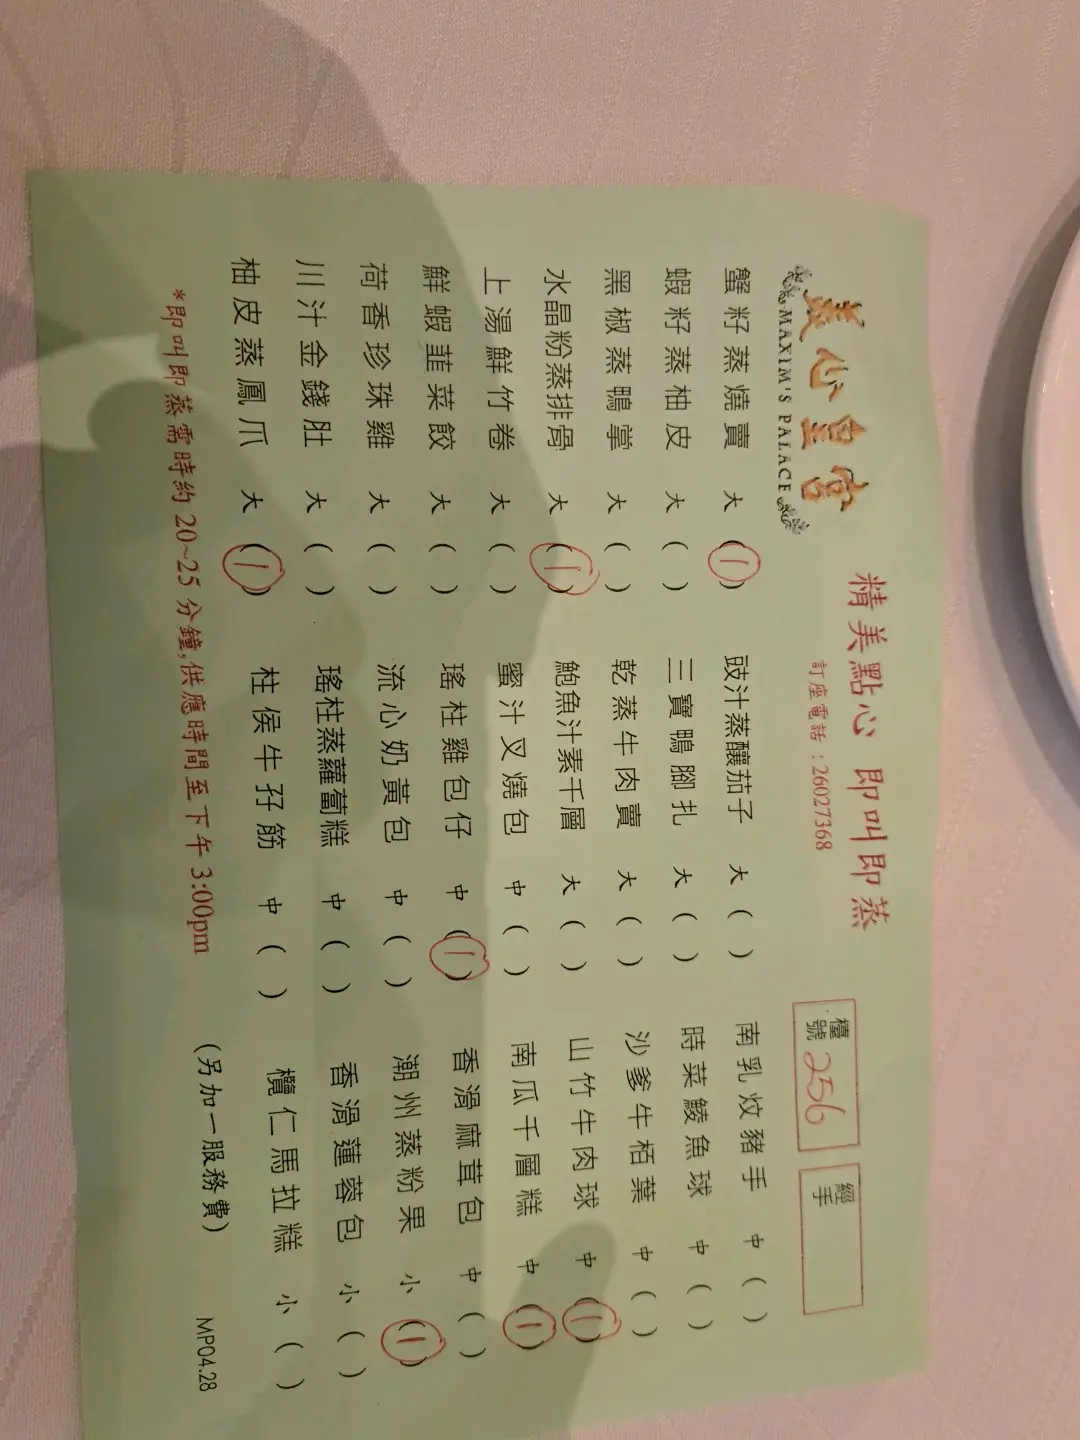 美心皇宮
MAXIM'S PALACE
精美點心 即叫即蒸
訂座電話：26027368
檯號 256
經手
蟹籽蒸燒賣 大 (1)
豉汁蒸釀茄子 大 ( )
南乳炆豬手 中 ( )
蝦籽蒸柚皮 大 ( )
三寶鴨腳扎 大 ( )
時菜鯪魚球 中 ( )
黑椒蒸鴨掌 大 ( )
乾蒸牛肉賣 大 ( )
沙爹牛栢葉 中 ( )
水晶粉蒸排骨 大 (1)
鮑魚汁素千層 大 ( )
山竹牛肉球 中 (1)
上湯鮮竹卷 大 ( )
蜜汁叉燒包 中 ( )
南瓜千層糕 中 (1)
鮮蝦韭菜餃 大 ( )
瑤柱雞包仔 中 (1)
香滑麻茸包 中 ( )
荷香珍珠雞 大 ( )
流心奶黃包 中 ( )
潮州蒸粉果 小 (1)
川汁金錢肚 大 ( )
瑤柱蒸蘿蔔糕 中 ( )
香滑蓮蓉包 小 ( )
柚皮蒸鳳爪 大 (1)
柱侯牛孖筋 中 ( )
欖仁馬拉糕 小 ( )
*即叫即蒸需時約 20~25 分鐘,供應時間至下午 3:00pm
(另加一服務費)
MP04.28